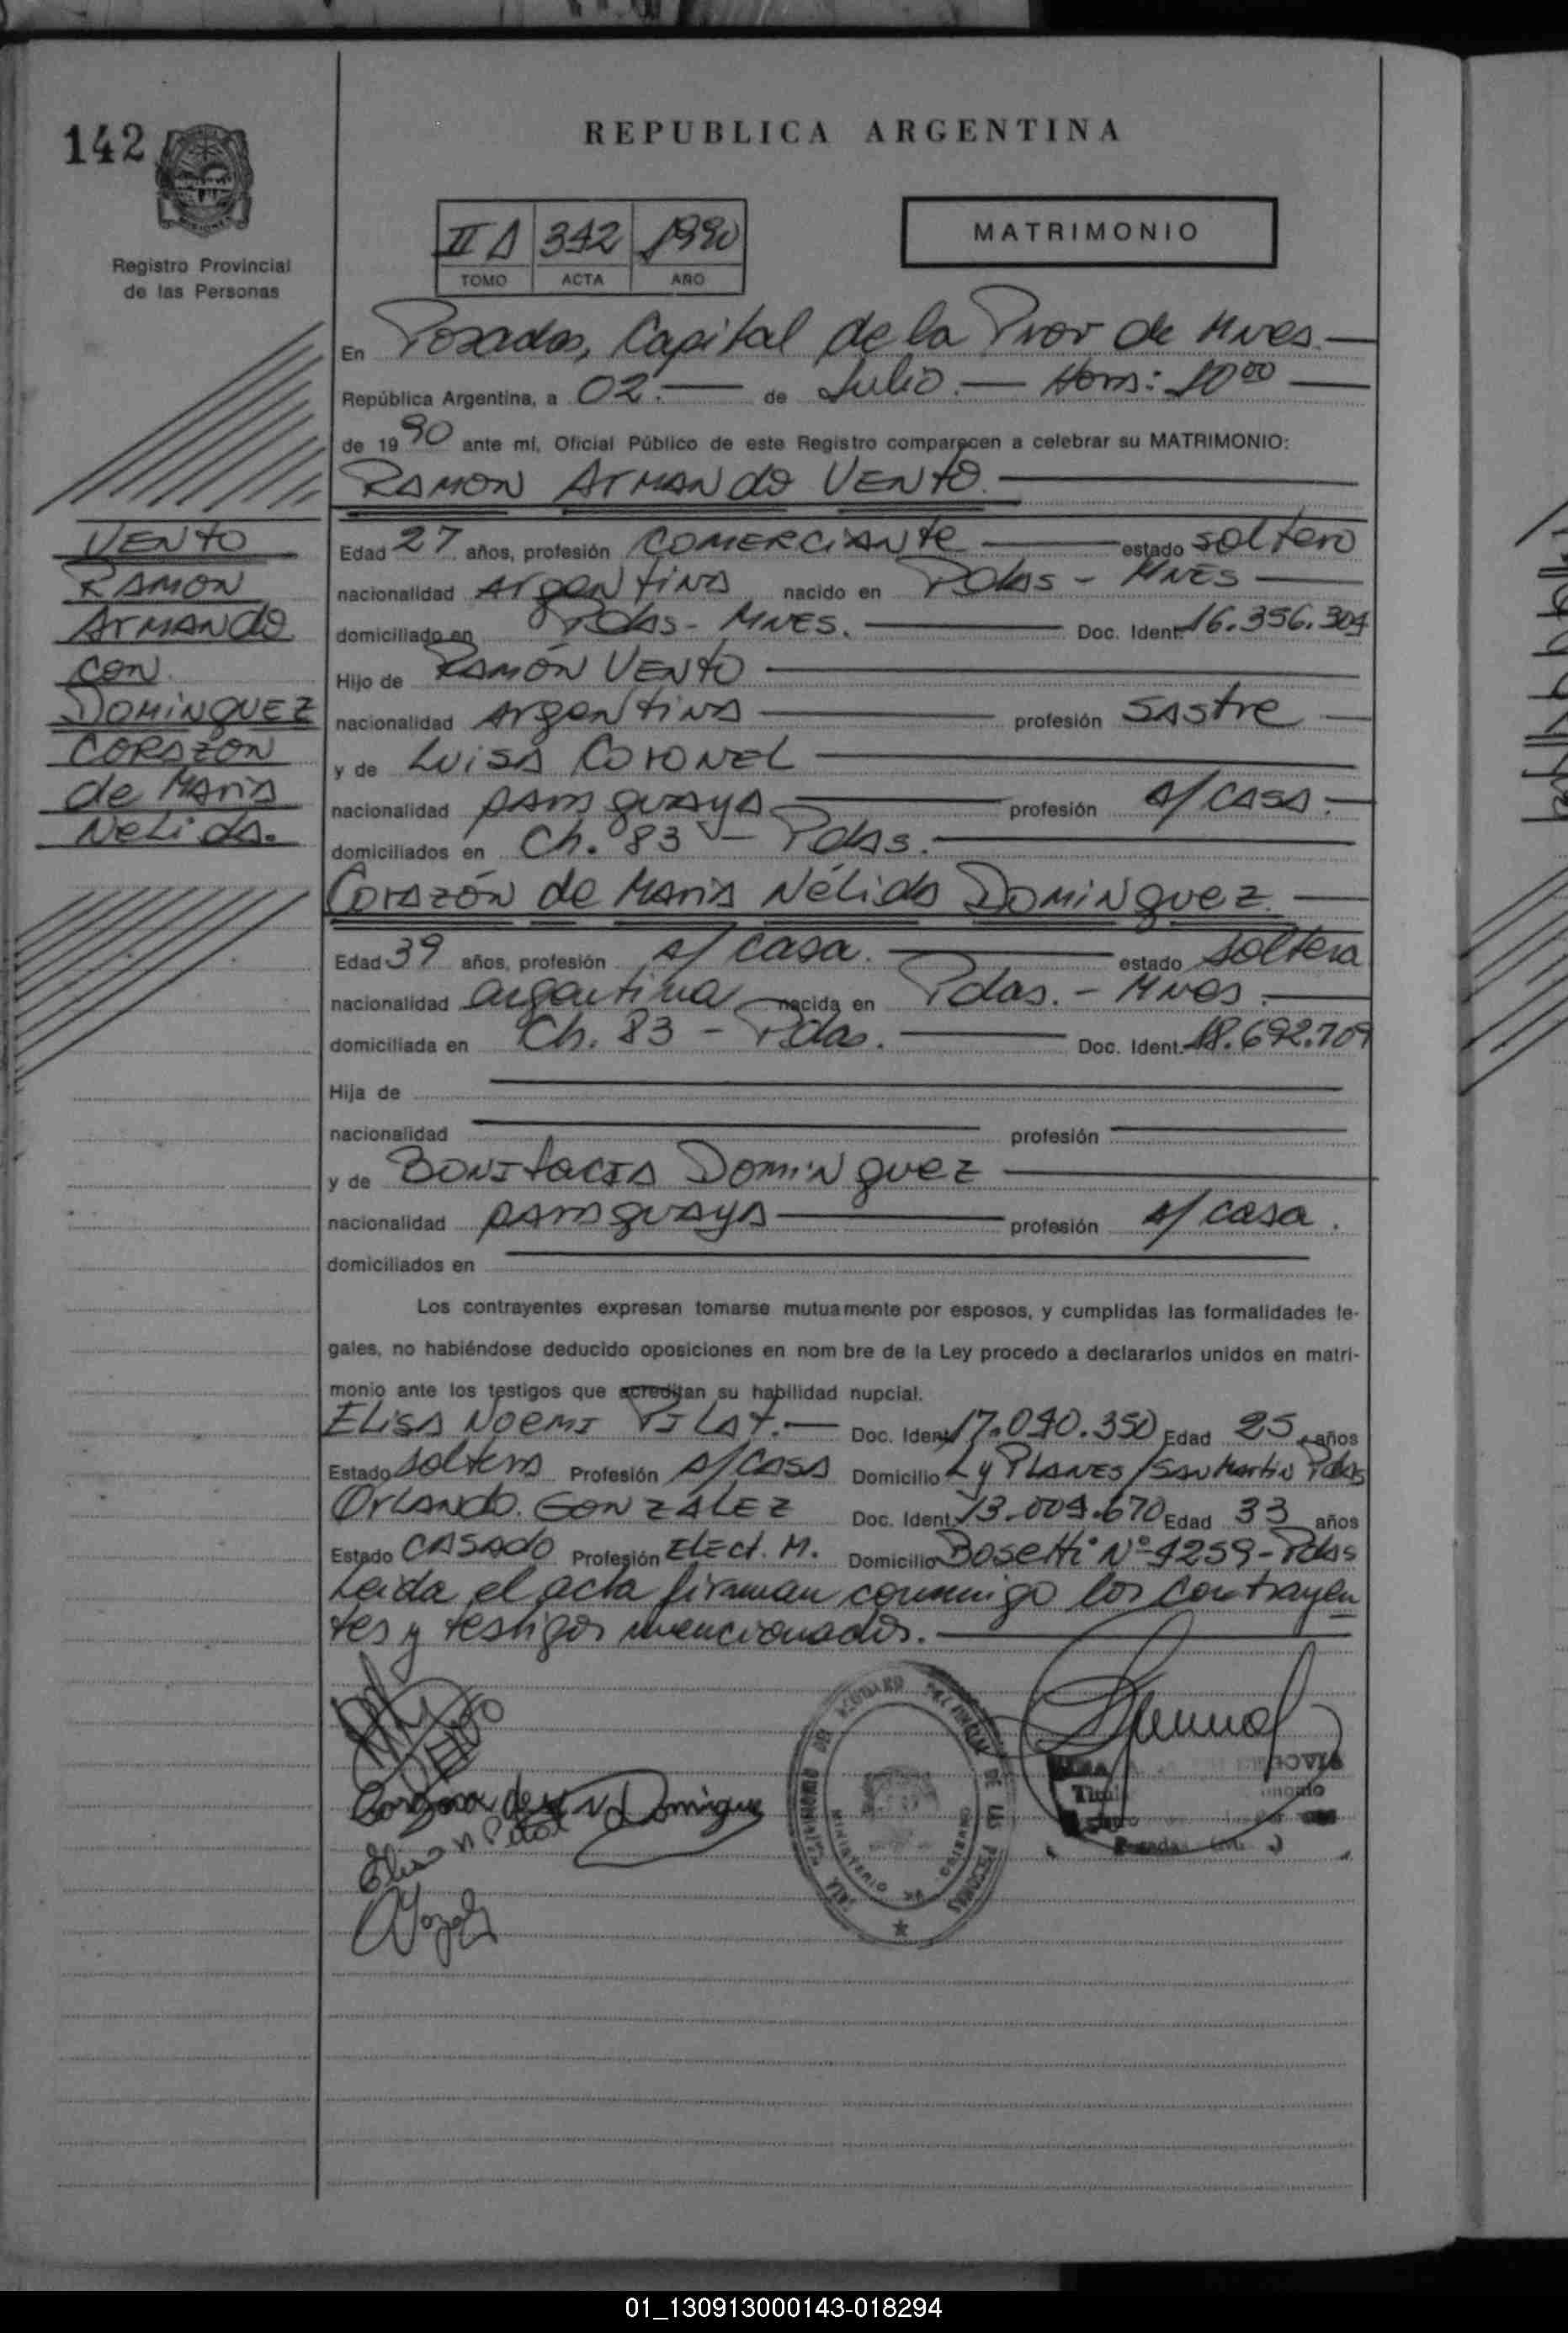 142
REPUBLICA ARGENTINA
Registro Provincial
de las Personas
II A 342 1990
TOMO ACTA AÑO
MATRIMONIO
En Posadas, Capital de la Prov de Mnes.
República Argentina, a 02.- de Julio.- Hora: 10 00
de 19 90 ante mí, Oficial Público de este Registro comparecen a celebrar su MATRIMONIO:
RAMON ArMANdo VENtO.
VENtO
RAMON
ArMANdo
con
DOMiNGUEZ
CORAZON
de MAriA
NeLidA.
Edad 27 años, profesión COMERCiANte estado soltero
nacionalidad ArgeNtiNA nacido en PdAs - MNES
domiciliado en PdAs - MNES. Doc. Ident. 16.356.304
Hijo de RAMÓN VENtO
nacionalidad ArgeNtiNA profesión SAstre
y de LuiSA COrONEL
nacionalidad pArAguAyA profesión s/ CASA.
domiciliados en Ch. 83 - PdAs.
COrAZÓN de MAriA NéLidA DOMiNguez.
Edad 39 años, profesión s/ casa. estado soltera
nacionalidad argentina nacida en Pdas. - Mnes.
domiciliada en Ch. 83 - Pdas. Doc. Ident. 18.692.709
Hija de
nacionalidad profesión
y de BONIfACIA DOMiNguez
nacionalidad pArAguAyA profesión s/ casa.
domiciliados en
Los contrayentes expresan tomarse mutuamente por esposos, y cumplidas las formalidades le-
gales, no habiéndose deducido oposiciones en nom bre de la Ley procedo a declararlos unidos en matri-
monio ante los testigos que acreditan su habilidad nupcial.
ELiSA NOEMI PILAt.- Doc. Ident. 17.040.350 Edad 25 años
Estado solterA Profesión s/CASA Domicilio L y PLANES/SAN MArtiN PdAs
OrLANdo. GONZÁLEZ Doc. Ident. 13.009.670 Edad 33 años
Estado CASAdo Profesión ELEct. M. Domicilio Bosetti Nº 4259 - PdAs
Leida el acta firman conmigo los contrayen
tes y testigos mencionados.
VENTO
Corazon de M N Dominguez
Elisa N Pilat
MINISTERIO DE GOBIERNO
01_130913000143-018294